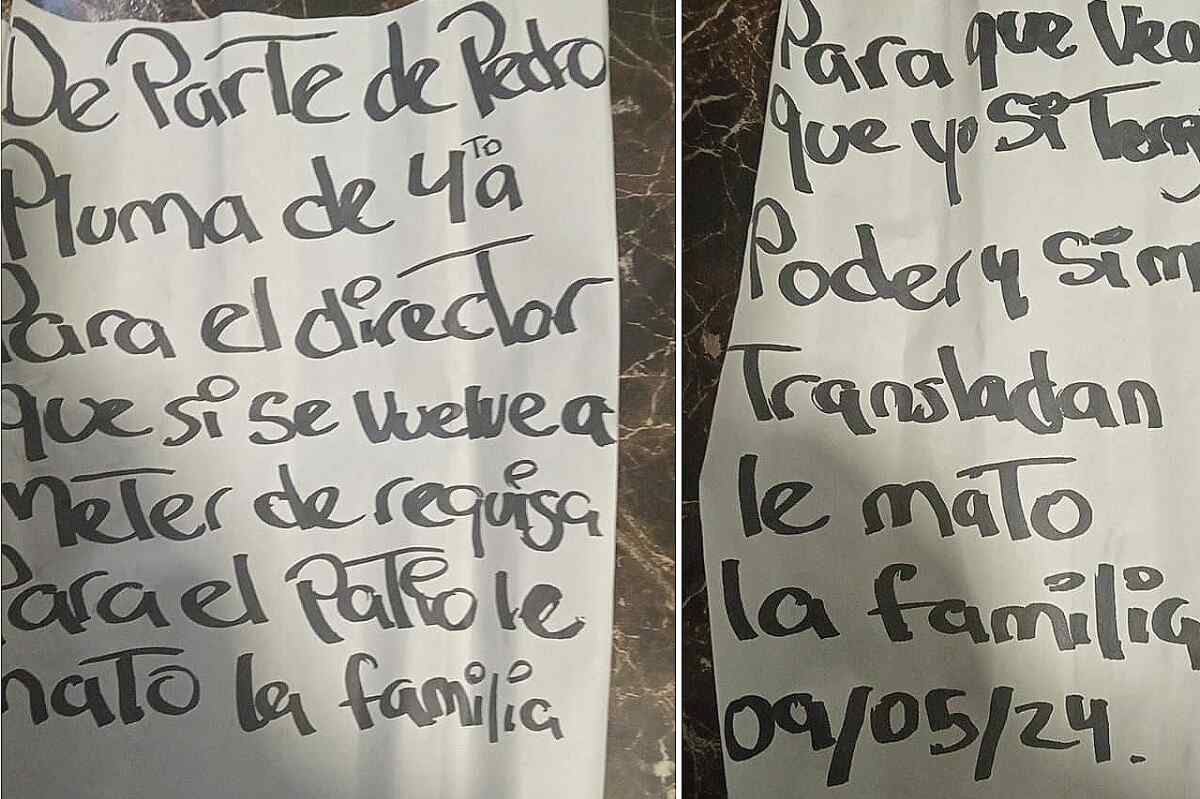 De Parte de Pedro
Pluma de 4to a
Para el director
que si se vuelve a
meter de requisa
Para el Patio le
mato la familia
Para que Vea
que yo Si Teng
Poder y Si m
Transladan
le mato
la familia
09/05/24.